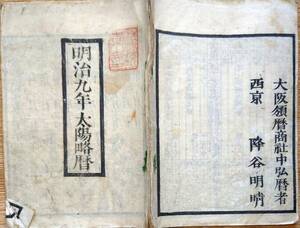 大阪頒暦商社中弘暦者
西京　降谷明晴
明治九年太陽略暦